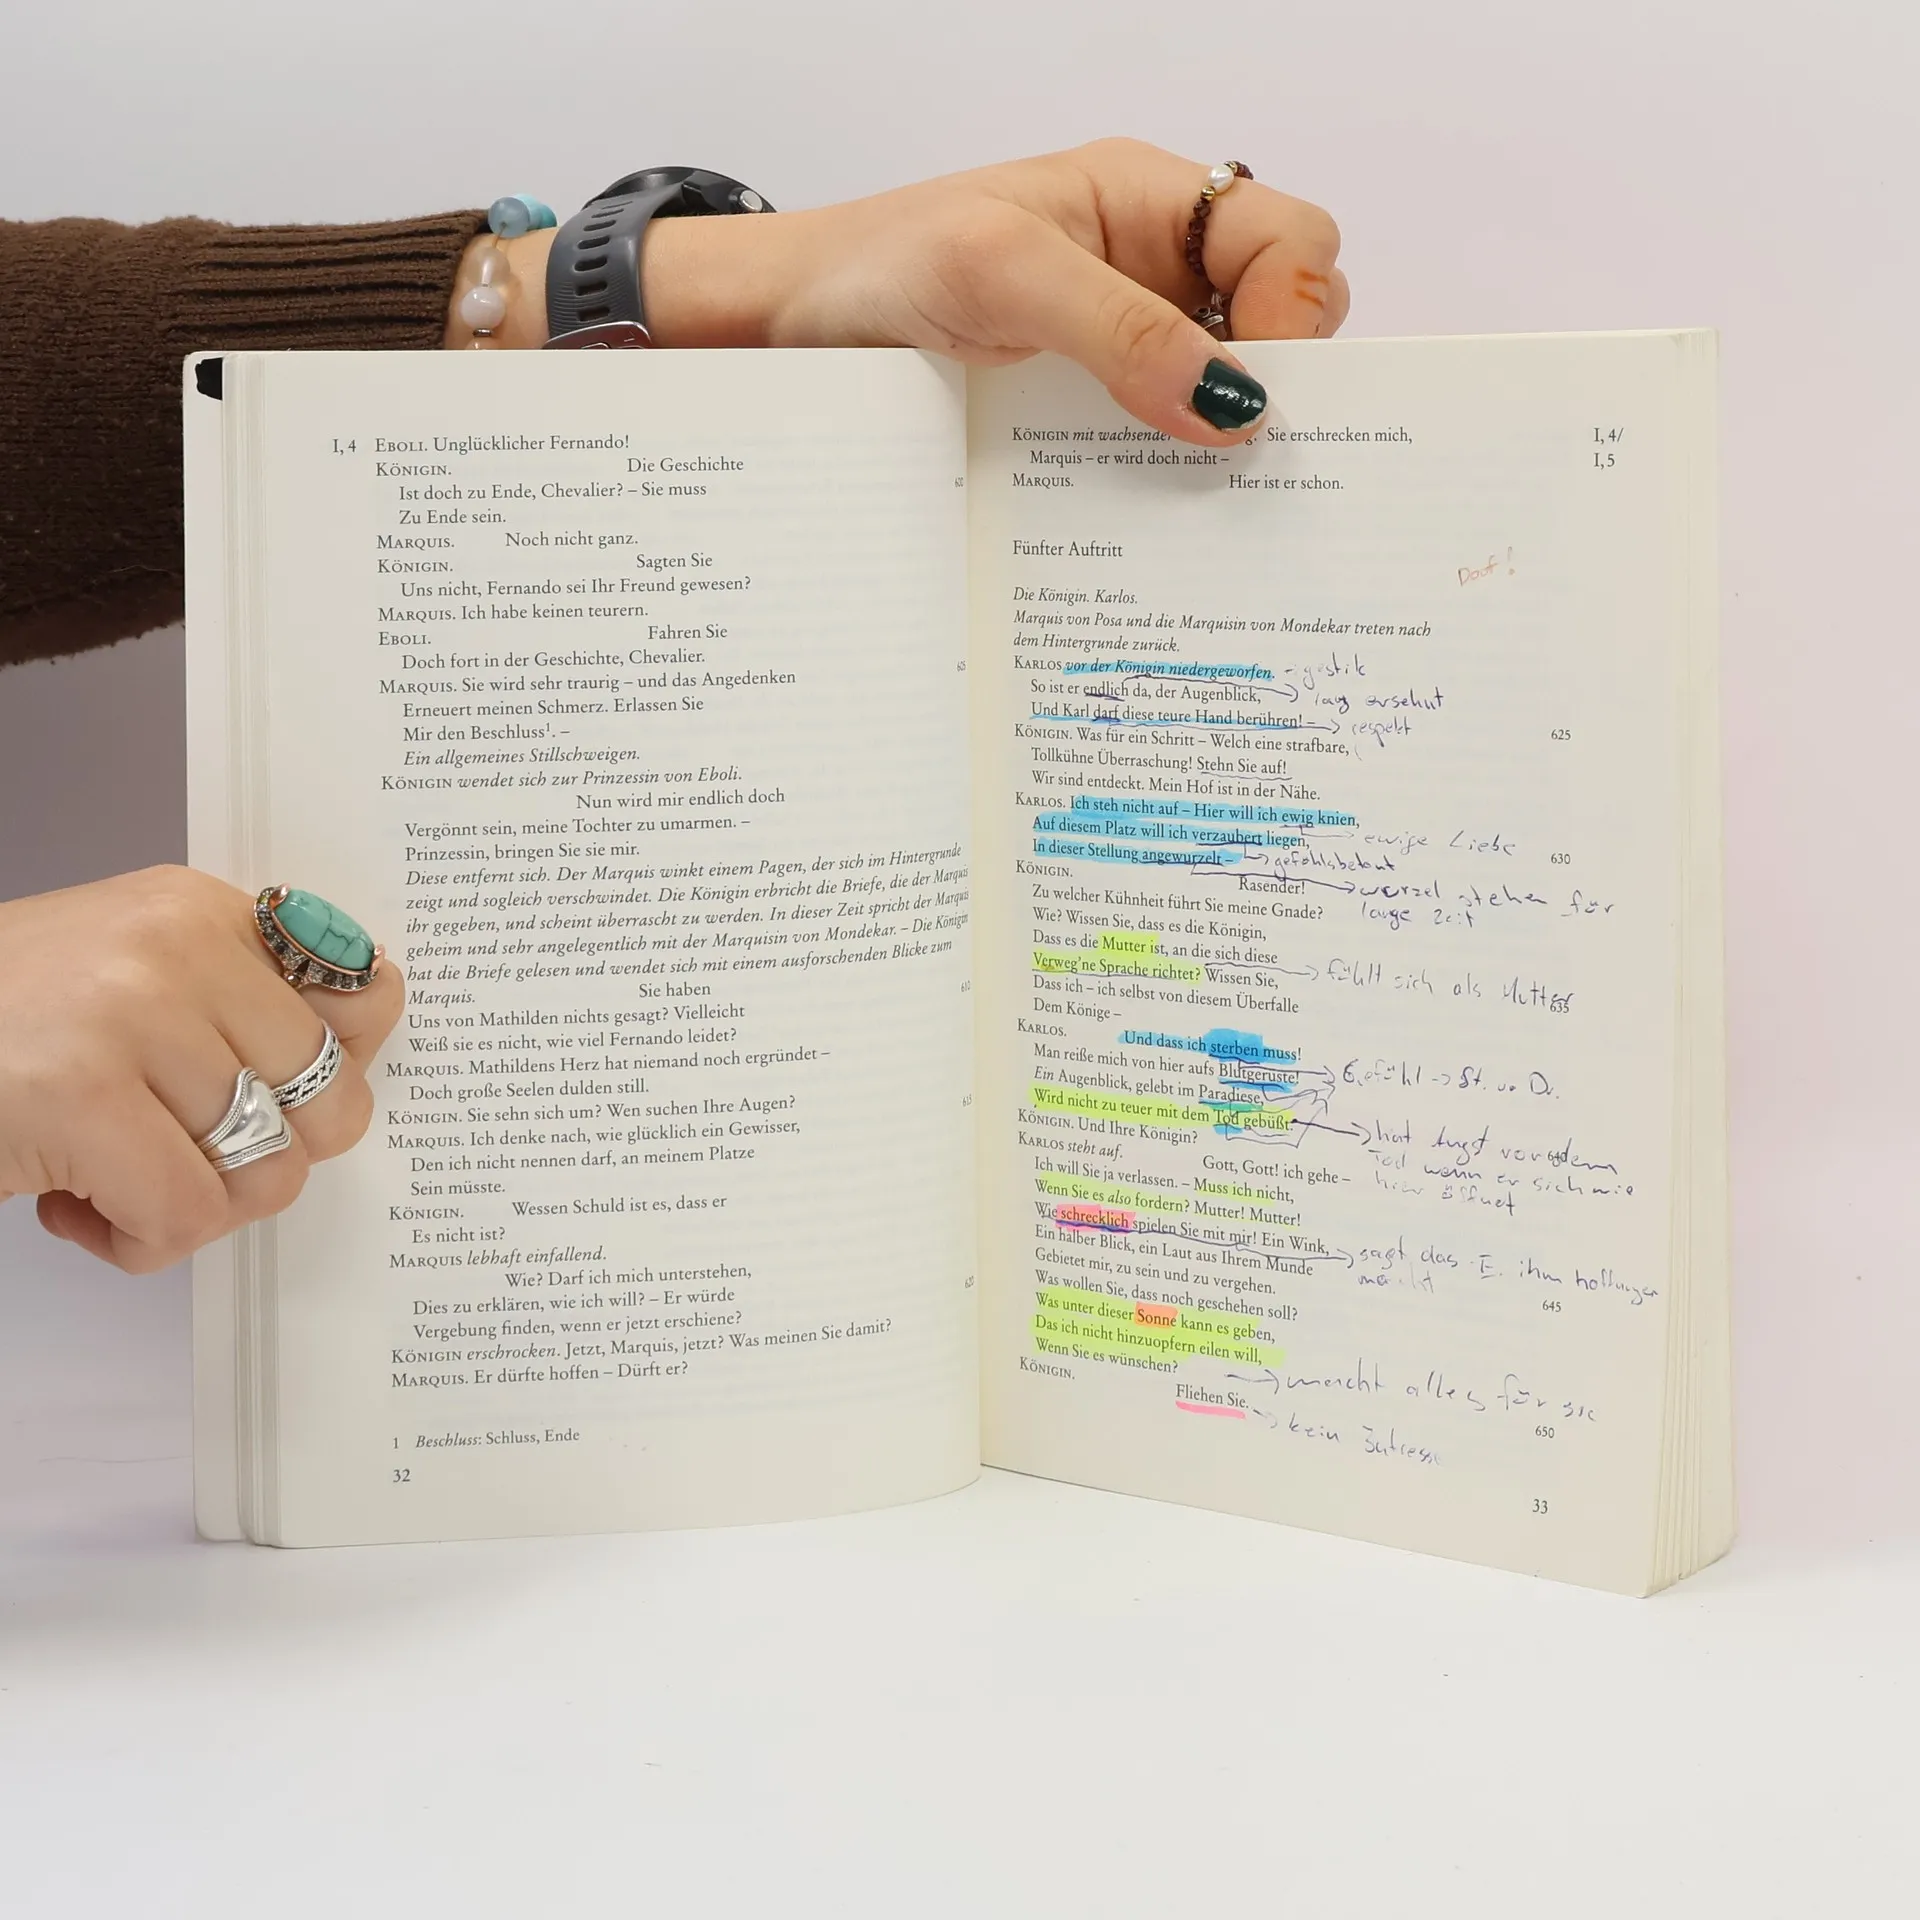 I, 4 EBOLI. Unglücklicher Fernando!
KÖNIGIN. Die Geschichte
Ist doch zu Ende, Chevalier? – Sie muss 600
Zu Ende sein.
MARQUIS. Noch nicht ganz.
KÖNIGIN. Sagten Sie
Uns nicht, Fernando sei Ihr Freund gewesen?
MARQUIS. Ich habe keinen teurern.
EBOLI. Fahren Sie
Doch fort in der Geschichte, Chevalier. 605
MARQUIS. Sie wird sehr traurig – und das Angedenken
Erneuert meinen Schmerz. Erlassen Sie
Mir den Beschluss¹. –
Ein allgemeines Stillschweigen.
KÖNIGIN wendet sich zur Prinzessin von Eboli.
Nun wird mir endlich doch
Vergönnt sein, meine Tochter zu umarmen. –
Prinzessin, bringen Sie sie mir.
Diese entfernt sich. Der Marquis winkt einem Pagen, der sich im Hintergrunde
zeigt und sogleich verschwindet. Die Königin erbricht die Briefe, die der Marquis
ihr gegeben, und scheint überrascht zu werden. In dieser Zeit spricht der Marquis
geheim und sehr angelegentlich mit der Marquisin von Mondekar. – Die Königin
hat die Briefe gelesen und wendet sich mit einem ausforschenden Blicke zum
Marquis. Sie haben 610
Uns von Mathilden nichts gesagt? Vielleicht
Weiß sie es nicht, wie viel Fernando leidet?
MARQUIS. Mathildens Herz hat niemand noch ergründet –
Doch große Seelen dulden still.
KÖNIGIN. Sie sehn sich um? Wen suchen Ihre Augen? 615
MARQUIS. Ich denke nach, wie glücklich ein Gewisser,
Den ich nicht nennen darf, an meinem Platze
Sein müsste.
KÖNIGIN. Wessen Schuld ist es, dass er
Es nicht ist?
MARQUIS lebhaft einfallend.
Wie? Darf ich mich unterstehen,
Dies zu erklären, wie ich will? – Er würde 620
Vergebung finden, wenn er jetzt erschiene?
KÖNIGIN erschrocken. Jetzt, Marquis, jetzt? Was meinen Sie damit?
MARQUIS. Er dürfte hoffen – Dürft er?
1 Beschluss: Schluss, Ende
32
KÖNIGIN mit wachsender g. Sie erschrecken mich, I, 4/
Marquis – er wird doch nicht – I, 5
MARQUIS. Hier ist er schon.
Fünfter Auftritt
Doof!
Die Königin. Karlos.
Marquis von Posa und die Marquisin von Mondekar treten nach
dem Hintergrunde zurück.
KARLOS vor der Königin niedergeworfen. - gestik
So ist er endlich da, der Augenblick, → lang ersehnt
Und Karl darf diese teure Hand berühren! – → respekt
KÖNIGIN. Was für ein Schritt – Welch eine strafbare, 625
Tollkühne Überraschung! Stehn Sie auf!
Wir sind entdeckt. Mein Hof ist in der Nähe.
KARLOS. Ich steh nicht auf – Hier will ich ewig knien,
Auf diesem Platz will ich verzaubert liegen, → ewige Liebe
In dieser Stellung angewurzelt – → gefühlsbetont 630
KÖNIGIN. Rasender! → wurzel stehen für
Zu welcher Kühnheit führt Sie meine Gnade? lange Zeit
Wie? Wissen Sie, dass es die Königin,
Dass es die Mutter ist, an die sich diese
Verweg'ne Sprache richtet? Wissen Sie, → fühlt sich als Mutter
Dass ich – ich selbst von diesem Überfalle 635
Dem Könige –
KARLOS. Und dass ich sterben muss!
Man reiße mich von hier aufs Blutgerüste! → Gefühl → St. u. Dr.
Ein Augenblick, gelebt im Paradiese,
Wird nicht zu teuer mit dem Tod gebüßt. → hat Angst vor dem
KÖNIGIN. Und Ihre Königin? Tod wenn er sich wie
KARLOS steht auf. hier öffnet
Gott, Gott! ich gehe – 640
Ich will Sie ja verlassen. – Muss ich nicht,
Wenn Sie es also fordern? Mutter! Mutter!
Wie schrecklich spielen Sie mit mir! Ein Wink, → sagt das E. ihm hoffnungen
Ein halber Blick, ein Laut aus Ihrem Munde macht
Gebietet mir, zu sein und zu vergehen. 645
Was wollen Sie, dass noch geschehen soll?
Was unter dieser Sonne kann es geben,
Das ich nicht hinzuopfern eilen will,
Wenn Sie es wünschen? → macht alles für sie
KÖNIGIN. Fliehen Sie. → kein 650
33